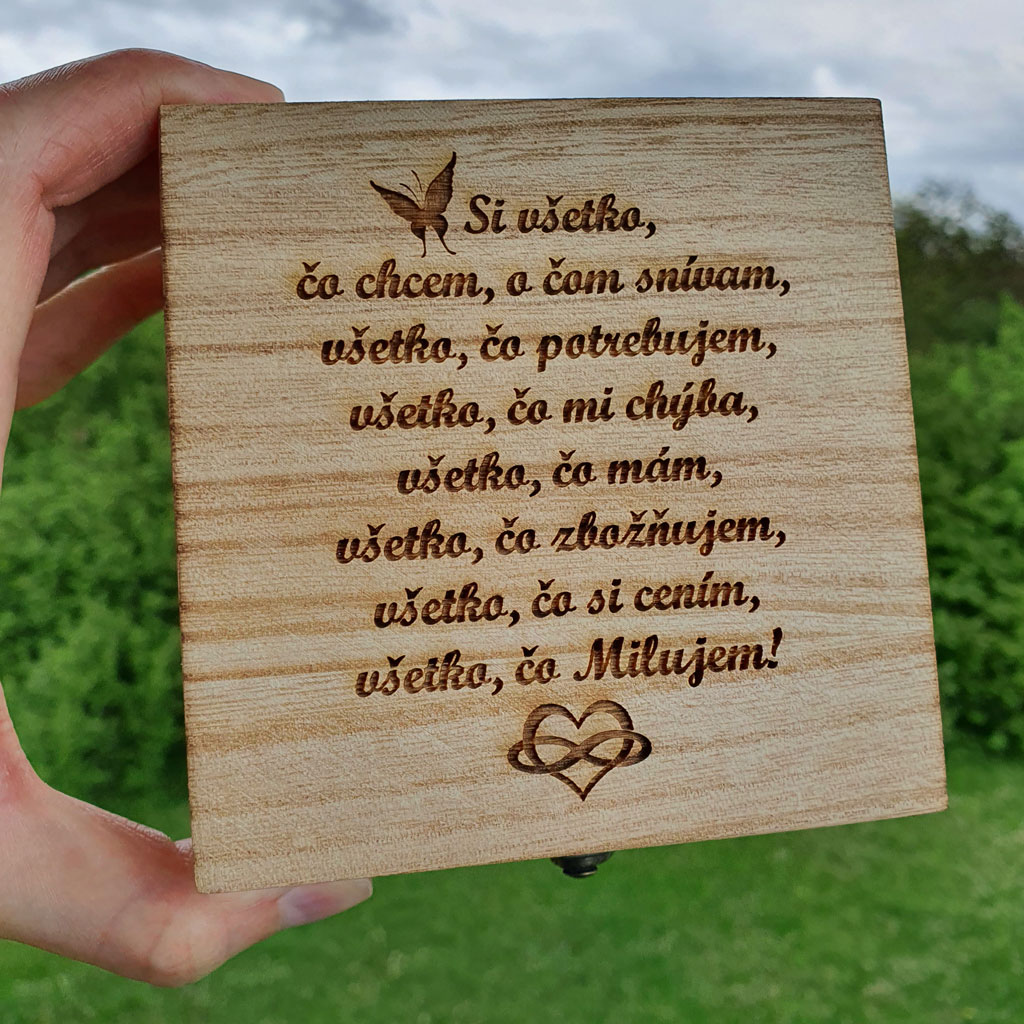 Si všetko,
čo chcem, o čom snívam,
všetko, čo potrebujem,
všetko, čo mi chýba,
všetko, čo mám,
všetko, čo zbožňujem,
všetko, čo si cením,
všetko, čo Milujem!